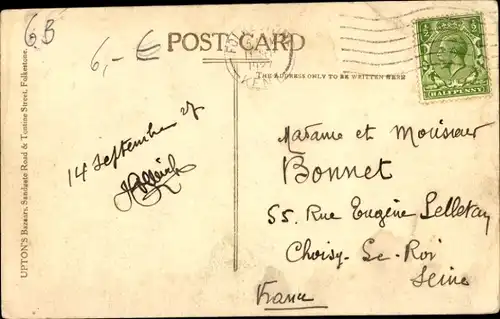 6B
6,- €
POST CARD
THE ADDRESS ONLY TO BE WRITTEN HERE
HALFPENNY
UPTON'S Bazaars, Sandgate Road & Tontine Street, Folkestone.
14 September 27
Madame et Monsieur
Bonnet
55 Rue Eugène Pelletan
Choisy-Le-Roi
Seine
France